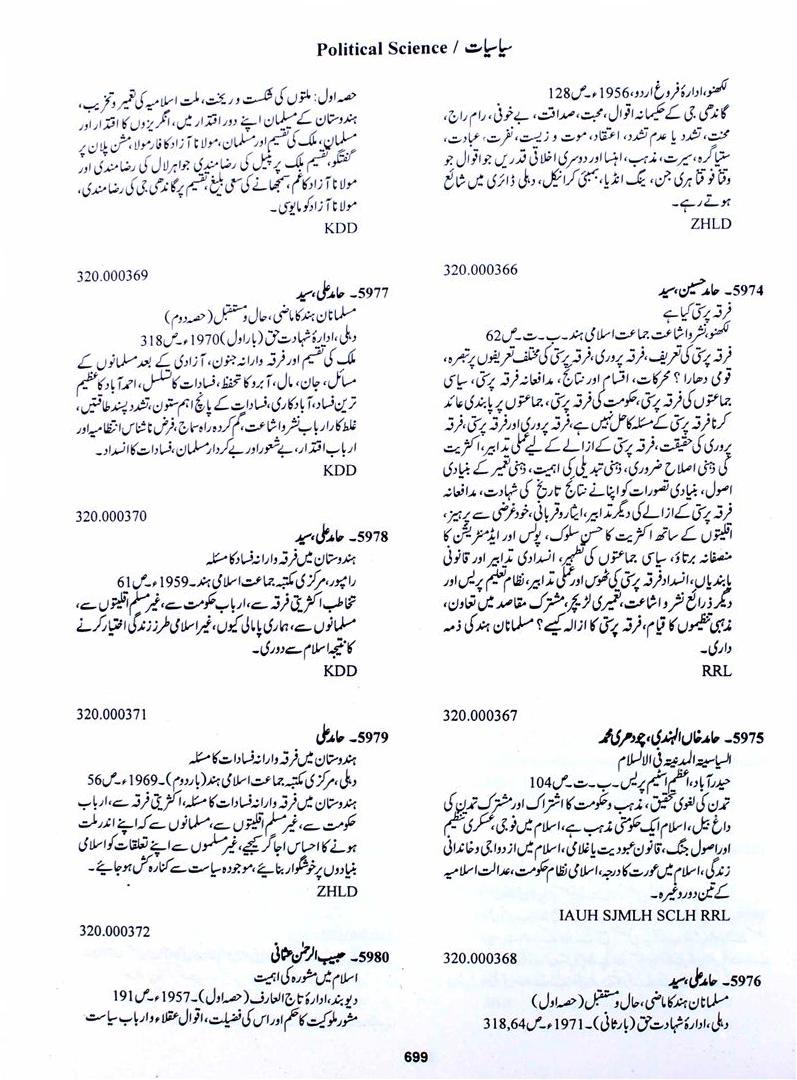 سیاسیات / Political Science
لکھنو، ادارۂ فروغ اردو، 1956ء۔ ص128
گاندھی جی کے حکیمانہ اقوال، محبت، صداقت، بے خوفی، رام راج،
محنت، تشدد یا عدم تشدد، اعتقاد، موت و زیست، نفرت، عبادت،
ستیاگرہ، سیرت، مذہب، اہنسا اور دوسری اخلاقی قدریں جو اقوال جو
وقتاً فوقتاً ہری جن، ینگ انڈیا، بمبئی کرانیکل، دہلی ڈائری میں شائع
ہوتے رہے۔
ZHLD
320.000366
5974۔ حامد حسین، سید
فرقہ پرستی کیا ہے
لکھنو، نشر و اشاعت جماعت اسلامی ہند۔ ب۔ ت۔ ص62
فرقہ پرستی کی تعریف، فرقہ پروری، فرقہ پرستی کی مختلف تعریفوں پر تبصرہ،
قومی دھارا؟ محرکات، اقسام اور نتائج، مدافعانہ فرقہ پرستی، سیاسی
جماعتوں کی فرقہ پرستی، حکومت کی فرقہ پرستی، جماعتوں پر پابندی عائد
کرنا فرقہ پرستی کے مسئلہ کا حل نہیں ہے، فرقہ پروری اور فرقہ پرستی، فرقہ
پروری کی حقیقت، فرقہ پرستی کے ازالے کے لیے عملی تدابیر، اکثریت
کی ذہنی اصلاح ضروری، ذہنی تبدیلی کی اہمیت، ذہنی تعمیر کے بنیادی
اصول، بنیادی تصورات کو اپنانے نتائج تاریخ کی شہادت، مدافعانہ
فرقہ پرستی کے ازالے کی دیگر تدابیر، ایثار و قربانی، خود غرضی سے پرہیز،
اقلیتوں کے ساتھ اکثریت کا حسن سلوک، پولس اور ایڈمنسٹریشن کا
منصفانہ برتاؤ، سیاسی جماعتوں کی تطہیر، انسدادی تدابیر اور قانونی
پابندیاں، انسداد فرقہ پرستی کی ٹھوس اور عملی تدابیر، نظام تعلیم پریس اور
دیگر ذرائع نشر و اشاعت، تعمیری لٹریچر، مشترک مقاصد میں تعاون،
مذہبی تنظیموں کا قیام، فرقہ پرستی کا ازالہ کیسے؟ مسلمانان ہند کی ذمہ
داری۔
RRL
320.000367
5975۔ حامد خاں الہندی، چودھری محمد
السیاسیۃ المدنیۃ فی الاسلام
حیدرآباد، اعظم اسٹیم پریس۔ ب۔ ت۔ ص104
تمدن کی لغوی تحقیق، مذہب و حکومت کا اشتراک اور مشترک تمدن کی
داغ بیل، اسلام ایک حکومتی مذہب ہے، اسلام میں فوجی، عسکری تنظیم
اور اصول جنگ، قانون عبودیت یا غلامی، اسلام میں ازدواجی و خاندانی
زندگی، اسلام میں عورت کا درجہ، اسلامی نظام حکومت، عدالت اسلامیہ
کے تین دور وغیرہ۔
IAUH SJMLH SCLH RRL
320.000368
5976۔ حامد علی، سید
مسلمانان ہند کا ماضی، حال و مستقبل (حصہ اول)
دہلی، ادارۂ شہادت حق (بار ثانی)۔ 1971ء۔ ص318,64
حصہ اول: ملتوں کی شکست و ریخت، ملت اسلامیہ کی تعمیر و تخریب،
ہندوستان کے مسلمان اپنے دور اقتدار میں، انگریزوں کا اقتدار اور
مسلمان، ملک کی تقسیم اور مسلمان، مولانا آزاد کا فارمولا، مشن پلان پر
گفتگو، تقسیم ملک پر پٹیل کی رضامندی جواہر لال کی رضامندی اور
مولانا آزاد کا غم، سمجھانے کی سعی بلیغ، تقسیم پر گاندھی جی کی رضامندی،
مولانا آزاد کو مایوسی۔
KDD
320.000369
5977۔ حامد علی، سید
مسلمانان ہند کا ماضی، حال و مستقبل (حصہ دوم)
دہلی، ادارۂ شہادت حق (بار اول) 1970ء۔ ص318
ملک کی تقسیم اور فرقہ وارانہ جنون، آزادی کے بعد مسلمانوں کے
مسائل، جان، مال، آبرو کا تحفظ، فسادات کا تسلسل، احمد آباد کا عظیم
ترین فساد، آباد کاری، فسادات کے پانچ اہم ستون، تشدد پسند طاقتیں،
غلط کار ارباب نشر و اشاعت، گم کردہ راہ سماج، فرض ناشناس انتظامیہ اور
ارباب اقتدار، بے شعور اور بے کردار مسلمان، فسادات کا انسداد۔
KDD
320.000370
5978۔ حامد علی، سید
ہندوستان میں فرقہ وارانہ فساد کا مسئلہ
رامپور، مرکزی مکتبہ جماعت اسلامی ہند۔ 1959ء۔ ص61
تخاطب اکثریتی فرقہ سے، ارباب حکومت سے، غیر مسلم اقلیتوں سے،
مسلمانوں سے، ہماری پامالی کیوں، غیر اسلامی طرز زندگی اختیار کرنے
کا نتیجہ اسلام سے دوری۔
KDD
320.000371
5979۔ حامد علی
ہندوستان میں فرقہ وارانہ فسادات کا مسئلہ
دہلی، مرکزی مکتبہ جماعت اسلامی ہند (بار دوم)۔ 1969ء۔ ص56
ہندوستان میں فرقہ وارانہ فسادات کا مسئلہ، اکثریتی فرقہ سے، ارباب
حکومت سے، غیر مسلم اقلیتوں سے، مسلمانوں سے کہ اپنے اندر ملت
ہونے کا احساس اجاگر کیجیے، غیر مسلموں سے اپنے تعلقات کو اسلامی
بنیادوں پر خوشگوار بنائیے، موجودہ سیاست سے کنارہ کش ہو جائیے۔
ZHLD
320.000372
5980۔ حبیب الرحمٰن عثمانی
اسلام میں مشورہ کی اہمیت
دیوبند، ادارۂ تاج المعارف (حصہ اول)۔ 1957ء۔ ص191
مشور ملوکیت کا حکم اور اس کی فضیلت، اقوال عقلاء و ارباب سیاست
699